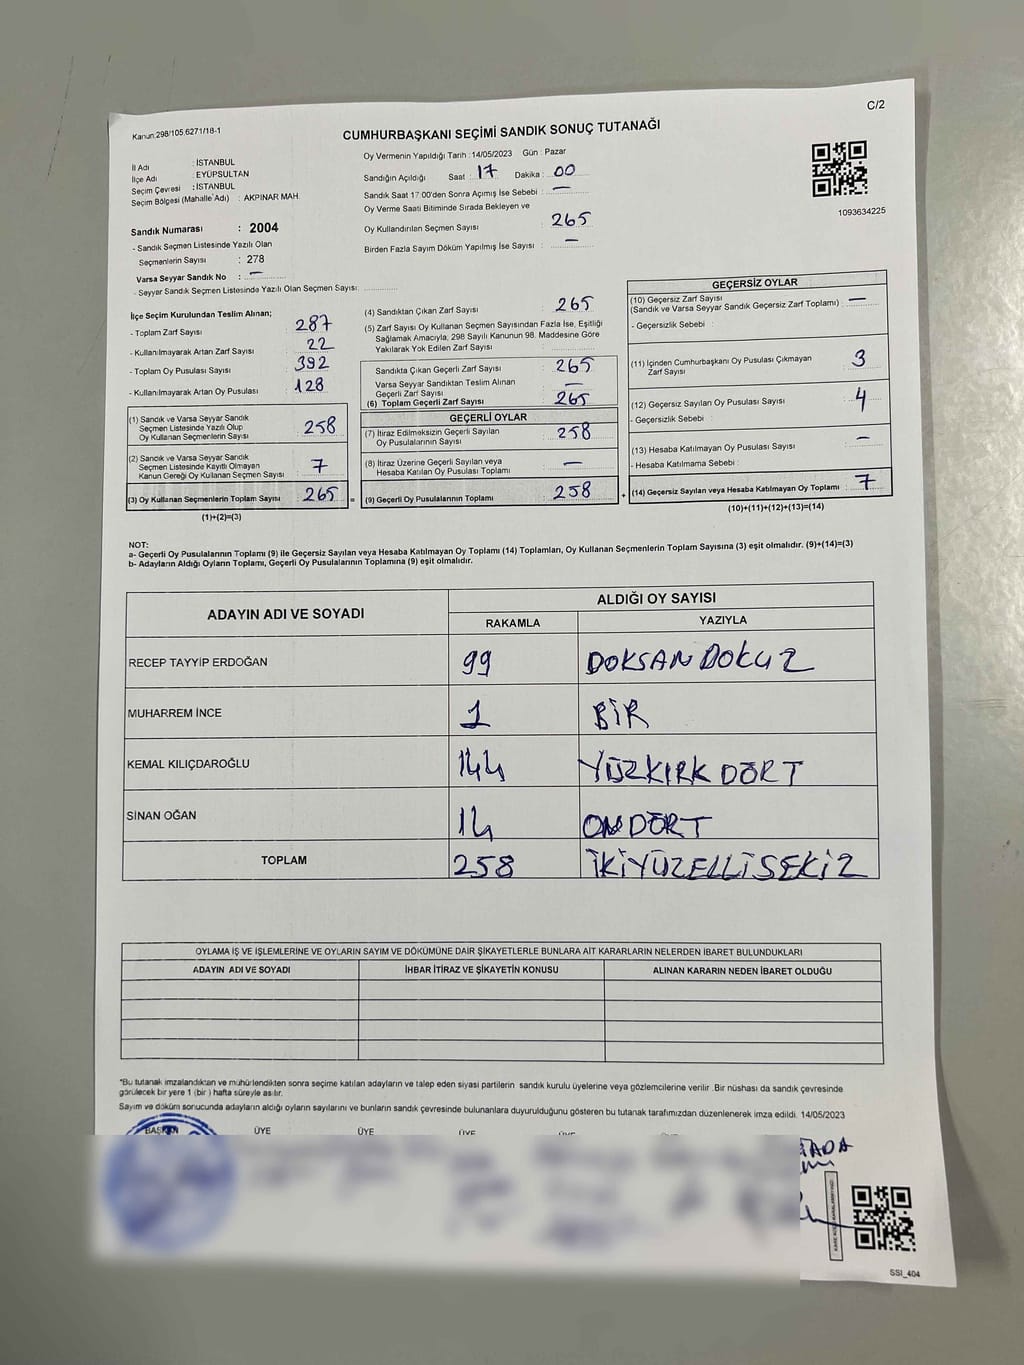 C/2
Kanun 298/105,6271/18-1
CUMHURBAŞKANI SEÇİMİ SANDIK SONUÇ TUTANAĞI
İl Adı : İSTANBUL
İlçe Adı : EYÜPSULTAN
Seçim Çevresi : İSTANBUL
Seçim Bölgesi (Mahalle Adı) : AKPINAR MAH.
Sandık Numarası : 2004
- Sandık Seçmen Listesinde Yazılı Olan
Seçmenlerin Sayısı : 278
Varsa Seyyar Sandık No : —
- Seyyar Sandık Seçmen Listesinde Yazılı Olan Seçmen Sayısı:
Oy Vermenin Yapıldığı Tarih : 14/05/2023 Gün : Pazar
Sandığın Açıldığı Saat : 17 Dakika : 00
Sandık Saat 17:00'den Sonra Açımış İse Sebebi : —
Oy Verme Saati Bitiminde Sırada Bekleyen ve
Oy Kullandırılan Seçmen Sayısı : 265
Birden Fazla Sayım Döküm Yapılmış İse Sayısı : —
1093634225
İlçe Seçim Kurulundan Teslim Alınan;
- Toplam Zarf Sayısı : 287
- Kullanılmayarak Artan Zarf Sayısı : 22
- Toplam Oy Pusulası Sayısı : 392
- Kullanılmayarak Artan Oy Pusulası : 128
(1) Sandık ve Varsa Seyyar Sandık
Seçmen Listesinde Yazılı Olup
Oy Kullanan Seçmenlerin Sayısı : 258
(2) Sandık ve Varsa Seyyar Sandık
Seçmen Listesinde Kayıtlı Olmayan
Kanun Gereği Oy Kullanan Seçmen Sayısı : 7
(3) Oy Kullanan Seçmenlerin Toplam Sayısı : 265 =
(1)+(2)=(3)
(4) Sandıktan Çıkan Zarf Sayısı : 265
(5) Zarf Sayısı Oy Kullanan Seçmen Sayısından Fazla İse, Eşitliği
Sağlamak Amacıyla, 298 Sayılı Kanunun 98. Maddesine Göre
Yakılarak Yok Edilen Zarf Sayısı :
Sandıkta Çıkan Geçerli Zarf Sayısı : 265
Varsa Seyyar Sandıktan Teslim Alınan
Geçerli Zarf Sayısı : —
(6) Toplam Geçerli Zarf Sayısı : 265
GEÇERLİ OYLAR
(7) İtiraz Edilmeksizin Geçerli Sayılan
Oy Pusulalarının Sayısı : 258
(8) İtiraz Üzerine Geçerli Sayılan veya
Hesaba Katılan Oy Pusulası Toplamı : —
(9) Geçerli Oy Pusulalarının Toplamı : 258 +
GEÇERSİZ OYLAR
(10) Geçersiz Zarf Sayısı
(Sandık ve Varsa Seyyar Sandık Geçersiz Zarf Toplamı) : —
- Geçersizlik Sebebi :
(11) İçinden Cumhurbaşkanı Oy Pusulası Çıkmayan
Zarf Sayısı : 3
(12) Geçersiz Sayılan Oy Pusulası Sayısı : 4
- Geçersizlik Sebebi :
(13) Hesaba Katılmayan Oy Pusulası Sayısı : —
- Hesaba Katılmama Sebebi :
(14) Geçersiz Sayılan veya Hesaba Katılmayan Oy Toplamı : 7
(10)+(11)+(12)+(13)=(14)
NOT:
a- Geçerli Oy Pusulalarının Toplamı (9) ile Geçersiz Sayılan veya Hesaba Katılmayan Oy Toplamı (14) Toplamları, Oy Kullanan Seçmenlerin Toplam Sayısına (3) eşit olmalıdır. (9)+(14)=(3)
b- Adayların Aldığı Oyların Toplamı, Geçerli Oy Pusulalarının Toplamına (9) eşit olmalıdır.
ADAYIN ADI VE SOYADI ALDIĞI OY SAYISI
RAKAMLA YAZIYLA
RECEP TAYYİP ERDOĞAN 99 DOKSAN DOKUZ
MUHARREM İNCE 1 BİR
KEMAL KILIÇDAROĞLU 144 YÜZKIRK DÖRT
SİNAN OĞAN 14 ON DÖRT
TOPLAM 258 İKİYÜZELLİSEKİZ
OYLAMA İŞ VE İŞLEMLERİNE VE OYLARIN SAYIM VE DÖKÜMÜNE DAİR ŞİKAYETLERLE BUNLARA AİT KARARLARIN NELERDEN İBARET BULUNDUKLARI
ADAYIN ADI VE SOYADI İHBAR İTİRAZ VE ŞİKAYETİN KONUSU ALINAN KARARIN NEDEN İBARET OLDUĞU
*Bu tutanak imzalandıktan ve mühürlendikten sonra seçime katılan adayların ve talep eden siyasi partilerin sandık kurulu üyelerine veya gözlemcilerine verilir .Bir nüshası da sandık çevresinde
görülecek bir yere 1 (bir ) hafta süreyle asılır.
Sayım ve döküm sonucunda adayların aldığı oyların sayılarını ve bunların sandık çevresinde bulunanlara duyurulduğunu gösteren bu tutanak tarafımızdan düzenlenerek imza edildi. 14/05/2023
BAŞKAN ÜYE ÜYE
SSI_404